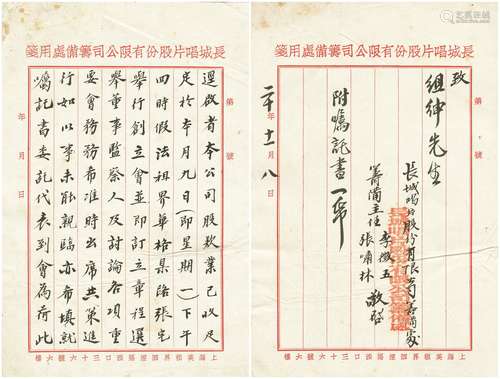 長城唱片股份有限公司籌備處用箋
逕啟者本公司股款業已收足
定於本月九日(即星期一)下午
四時假法租界華格臬路張宅
舉行創立會並即訂立章程選
舉董事監察人及討論各項重
要會務務希准時出席共策進
行如以事未能親臨亦希填就
囑託書委託代表到會為荷此
第 號
年 月 日
樓六號六十三口 租英海上
長城唱片股份有限公司籌備處用箋
致
組紳先生
長城唱片股份有限公司籌備處
籌備主任 李徵五
張嘯林 敬啟
附囑託書一紙
第 號
二十年十一月八日
樓六號六十三口 租英海上